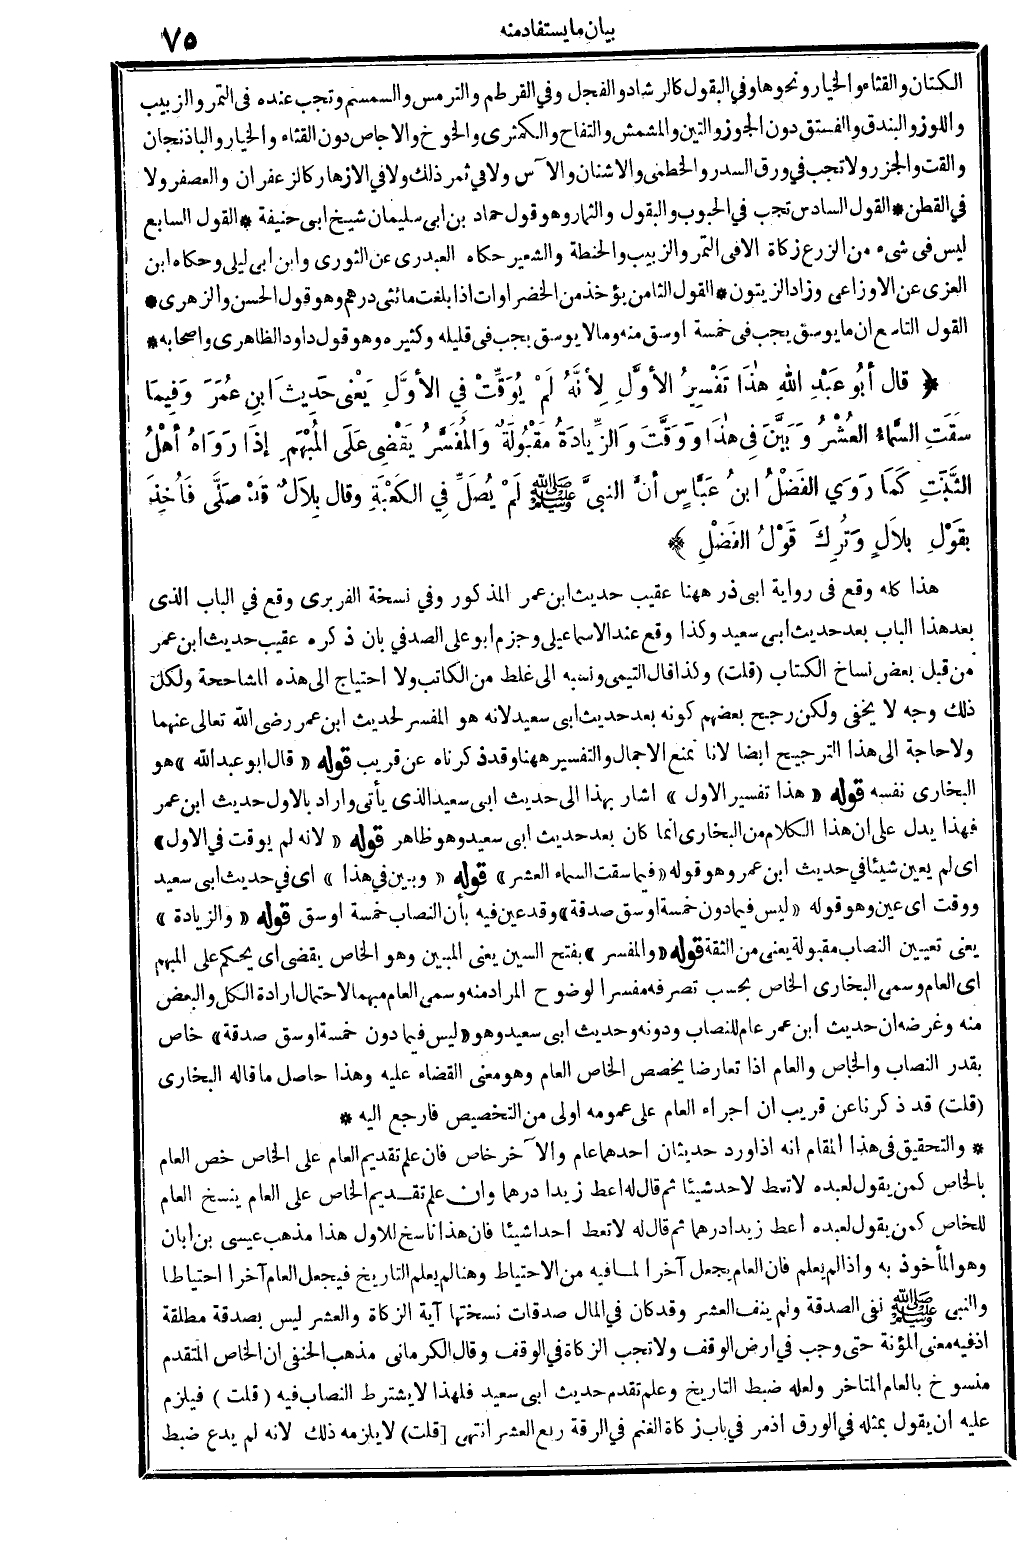 بيان ما يستفاد منه
٧٥
الكتان والقثاء والخيار ونحوها وفي البقول كالرشاد والفجل وفي القرطم والترمس والسمسم وتجب عنده فى التمر والزبيب
واللوز والبندق والفستق دون الجوز والتين والمشمش والتفاح والكمثرى والخوخ والاجاص دون القثاء والخيار والباذنجان
والقت والجزر ولا تجب في ورق السدر والخطمى والاشنان والآس ولا في ثمر ذلك ولا في الازهار كالزعفران والعصفر ولا
في القطن * القول السادس تجب في الحبوب والبقول والثمار وهو قول حماد بن ابى سليمان شيخ ابى حنيفة * القول السابع
ليس فى شىء من الزرع زكاة الا فى التمر والزبيب والحنطة والشعير حكاه العبدرى عن الثورى وابن ابى ليلى وحكاه ابن
العزى عن الاوزاعى وزاد الزيتون * القول الثامن يؤخذ من الخضراوات اذا بلغت مائتى درهم وهو قول الحسن والزهرى *
القول التاسع ان ما يوسق يجب فى خمسة اوسق منه وما لا يوسق يجب فى قليله وكثيره وهو قول داود الظاهرى واصحابه *
﴿ قال أبُو عَبْدِ اللهِ هٰذَا تَفْسِيرُ الأوَّلِ لِأنَّهُ لَمْ يُوَقِّتْ فِي الأوَّلِ يَعْنِى حَدِيثَ ابنِ عُمَرَ وَفِيمَا
سَقَتِ السَّمَاءُ العُشْرُ وَبَيَّنَ فِى هٰذَا وَوَقَّتَ وَالزِّيادَةُ مَقْبُولَةٌ وَالمُفَسَّرُ يَقْضِى عَلَى المُبْهَمِ إذَا رَوَاهُ أهْلُ
الثَّبَتِ كَمَا رَوَي الفَضْلُ ابنُ عَبَّاسٍ أنَّ النبيَّ ﷺ لَمْ يُصَلِّ فِي الكَعْبَةِ وقال بِلاَلٌ قَدْ صَلَّى فَأُخِذَ
بِقَوْلِ بِلاَلٍ وَتُرِكَ قَوْلُ الفَضْلِ ﴾
هذا كله وقع فى رواية ابى ذر ههنا عقيب حديث ابن عمر المذكور وفي نسخة الفربرى وقع في الباب الذى
بعد هذا الباب بعد حديث ابى سعيد وكذا وقع عند الاسماعيلى وجزم ابو على الصدفي بان ذكره عقيب حديث ابن عمر
من قبل بعض نساخ الكتاب (قلت) وكذا قال التيمى ونسبه الى غلط من الكاتب ولا احتياج الى هذه المشاححة ولكل
ذلك وجه لا يخفى ولكن رجح بعضهم كونه بعد حديث ابى سعيد لانه هو المفسر لحديث ابن عمر رضى الله تعالى عنهما
ولا حاجة الى هذا الترجيح ايضا لانا نمنع الاجمال والتفسير ههنا وقد ذكرناه عن قريب قوله « قال ابو عبد الله » هو
البخارى نفسه قوله « هذا تفسير الاول » اشار بهذا الى حديث ابى سعيد الذى يأتى واراد بالاول حديث ابن عمر
فهذا يدل على ان هذا الكلام من البخارى انما كان بعد حديث ابى سعيد وهو ظاهر قوله « لانه لم يوقت في الاول »
اى لم يعين شيئا في حديث ابن عمر وهو قوله « فيما سقت السماء العشر » قوله « وبين في هذا » اى في حديث ابى سعيد
ووقت اى عين وهو قوله « ليس فيما دون خمسة اوسق صدقة » وقد عين فيه بأن النصاب خمسة اوسق قوله « والزيادة »
يعنى تعيين النصاب مقبولة يعنى من الثقة قوله « والمفسر » بفتح السين يعنى المبين وهو الخاص يقضى اى يحكم على المبهم
اى العام وسمى البخارى الخاص بحسب تصرفه مفسرا لوضوح المراد منه وسمى العام مبهما لاحتمال ارادة الكل والبعض
منه وغرضه ان حديث ابن عمر عام للنصاب ودونه وحديث ابى سعيد وهو « ليس فيما دون خمسة اوسق صدقة » خاص
بقدر النصاب والخاص والعام اذا تعارضا يخصص الخاص العام وهو معنى القضاء عليه وهذا حاصل ما قاله البخارى
(قلت) قد ذكرنا عن قريب ان اجراء العام على عمومه اولى من التخصيص فارجع اليه *
* والتحقيق فى هذا المقام انه اذا ورد حديثان احدهما عام والآخر خاص فان علم تقديم العام على الخاص خص العام
بالخاص كمن يقول لعبده لا تعط لاحد شيئا ثم قال له اعط زيدا درهما وان علم تقديم الخاص على العام ينسخ العام
للخاص كمن يقول لعبده أعط زيدا درهما ثم قال له لا تعط احدا شيئا فان هذا ناسخ للاول هذا مذهب عيسى بن ابان
وهو المأخوذ به واذا لم يعلم فان العام يجعل آخرا لما فيه من الاحتياط وهنا لم يعلم التاريخ فيجعل العام آخرا احتياطا
والنبى ﷺ نفى الصدقة ولم ينف العشر وقد كان في المال صدقات نسختها آية الزكاة والعشر ليس بصدقة مطلقة
اذ فيه معنى المؤنة حتى وجب في ارض الوقف ولا تجب الزكاة في الوقف وقال الكرمانى مذهب الحنفى ان الخاص المتقدم
منسوخ بالعام المتاخر ولعله ضبط التاريخ وعلم تقدم حديث ابى سعيد فلهذا لا يشترط النصاب فيه ( قلت ) فيلزم
عليه ان يقول بمثله في الورق اذ مر في باب زكاة الغنم في الرقة ربع العشر انتهى [قلت) لا يلزمه ذلك لانه لم يدع ضبط